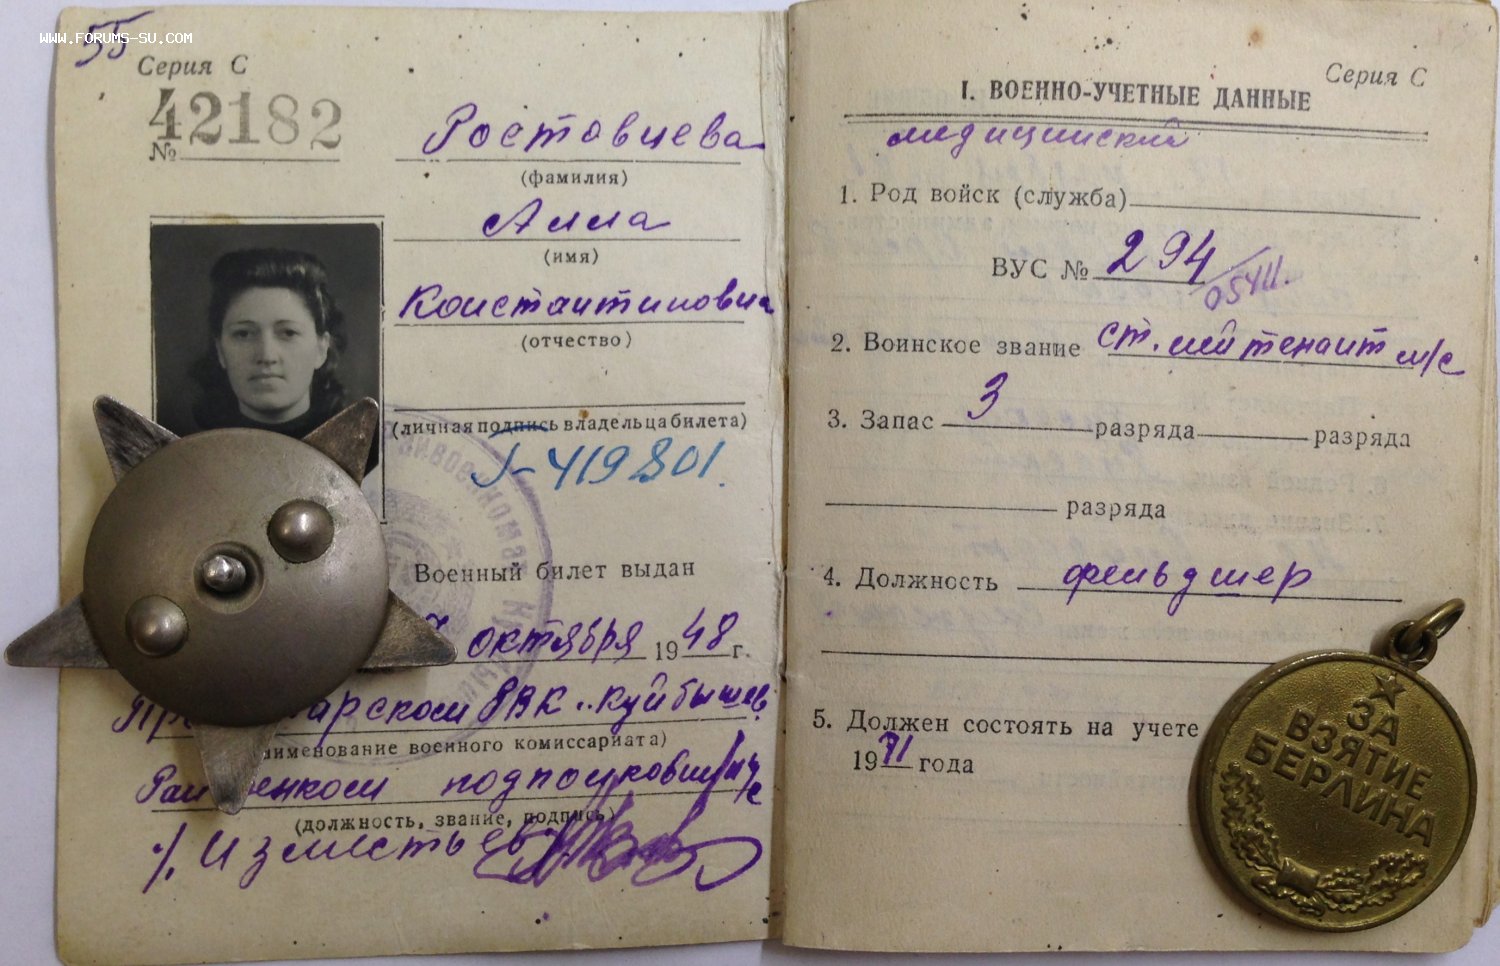 WWW.FORUMS-SU.COM
55
Серия С
42182
№
Ростовцева
(фамилия)
Алла
(имя)
Константиновна
(отчество)
(личная подпись владельца билета)
419801.
Военный билет выдан
октября 1948 г.
арском РВК г. Куйбышев
аименование военного комиссариата)
подполковник и/с
(должность, звание, подпись)
Серия С
I. ВОЕННО-УЧЕТНЫЕ ДАННЫЕ
медицинский
1. Род войск (служба)
ВУС № 294
2. Воинское звание ст. лейтенант м/с
3. Запас 3 разряда разряда
разряда
4. Должность фельдшер
5. Должен состоять на учете
1971 года
ЗА
ВЗЯТИЕ
БЕРЛИНА